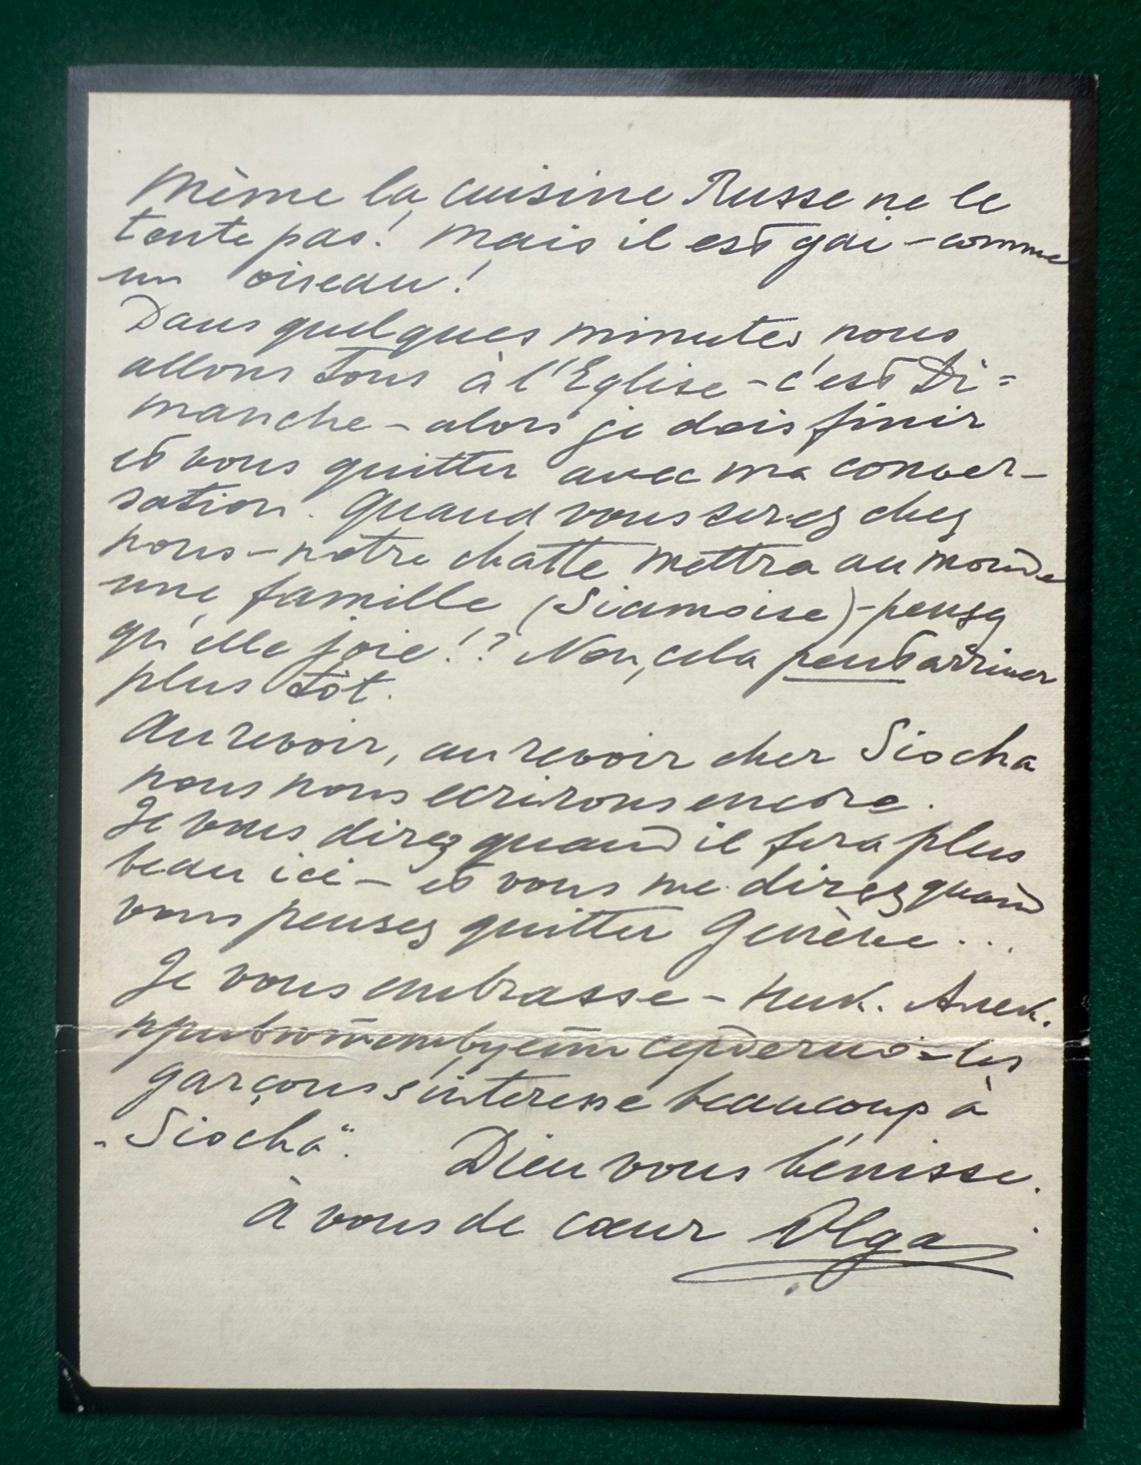 Même la cuisine Russe ne le
tente pas! Mais il est gai – comme
un oiseau!
Dans quelques minutes nous
allons tous à l'Eglise – c'est Di=
manche – alors je dois finir
et vous quitter avec ma conver-
sation. Quand vous serez chez
nous – notre chatte mettra au monde
une famille (Siamoise) – pensez
qu'elle joie!? Non, cela peut arriver
plus tôt.
Au revoir, au revoir cher Siocha
nous nous ecrirons encore.
Je vous direz quand il fera plus
beau ici – et vous me direz quand
vous pensez quitter Genève...
Je vous embrasse – Ник. Алек.
приветствует сердечно – les
garçons s'interesse beaucoup à
„Siocha".  Dieu vous bénisse.
à vous de cœur Olga